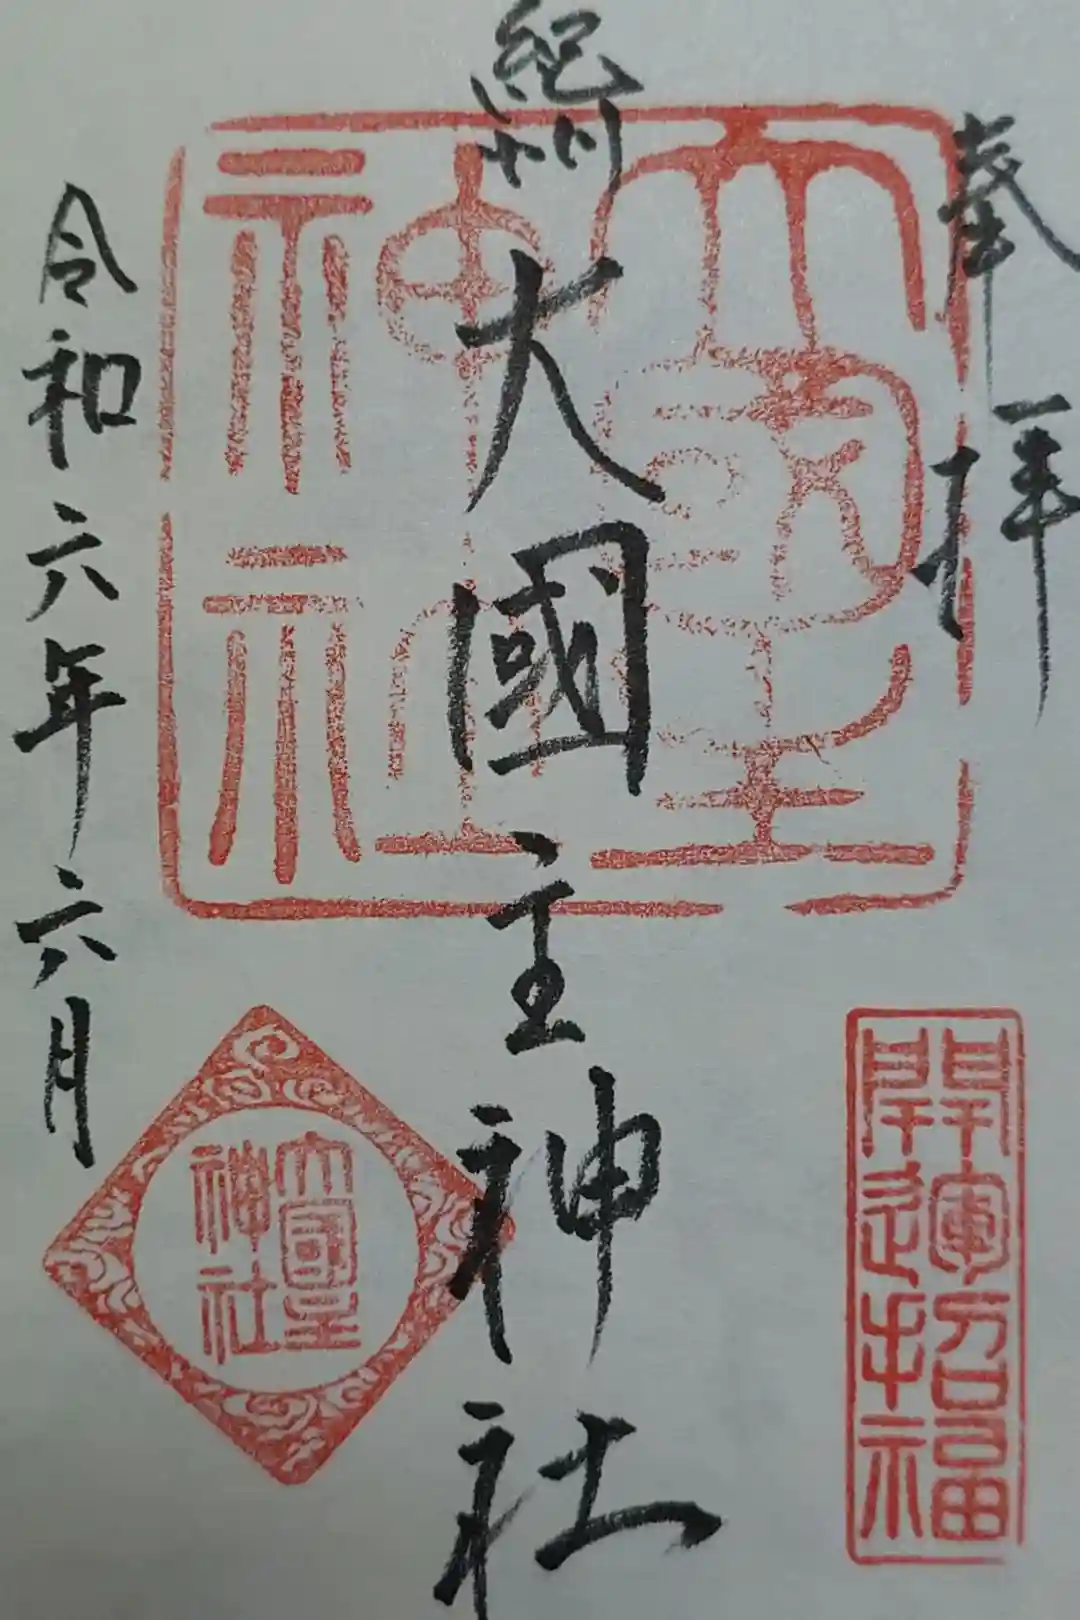 奉拝
紀州
大國主神社
令和六年六月
大國主
神社
大國主
神社
開運招福